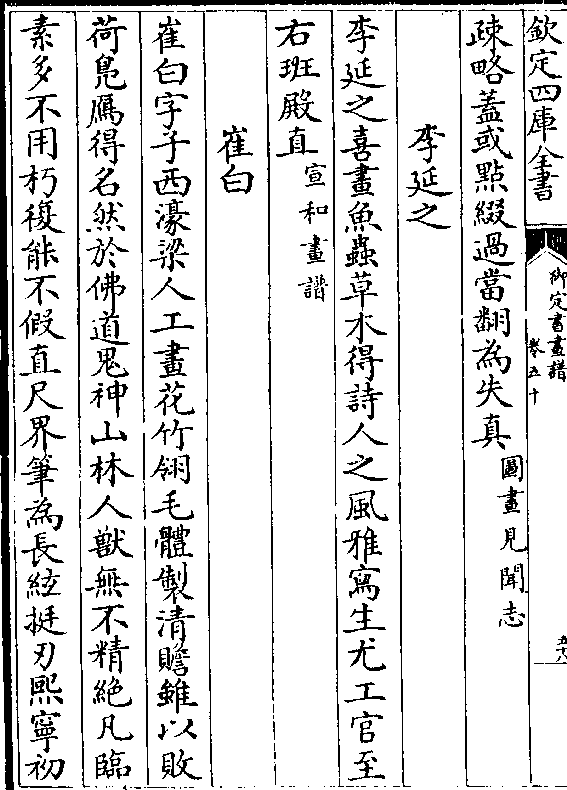 欽定四庫全書
御定書畫譜
卷五十
五六
疎略蓋或點綴過當翻為失真圖畫見聞志
李延之
李延之喜畫魚蟲草木得詩人之風雅寫生尤工官至
右班殿直宣和畫譜
崔白
崔白字子西濠梁人工畫花竹翎毛體製清贍雖以敗
荷鳬鴈得名然於佛道鬼神山林人獸無不精絶凡臨
素多不用朽復能不假直尺界筆為長絃挺刃熙寧初